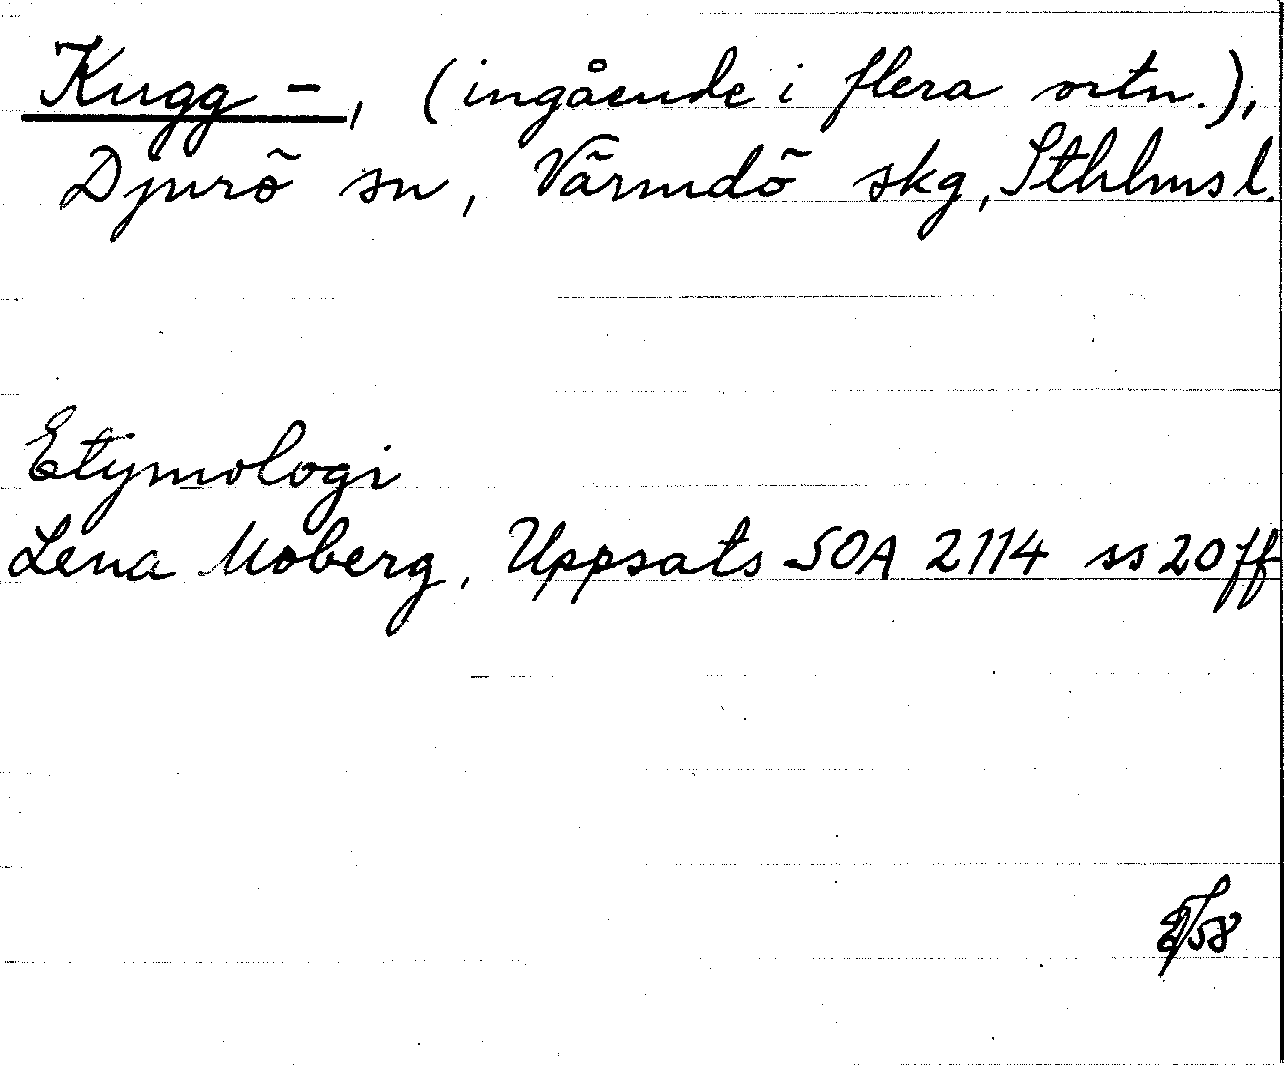 Kugg-, (ingående i flera ortn.),
Djurö sn, Värmdö skg, Sthlms l.
Etymologi
Lena Moberg, Uppsats SOA 2114 ss 20 ff